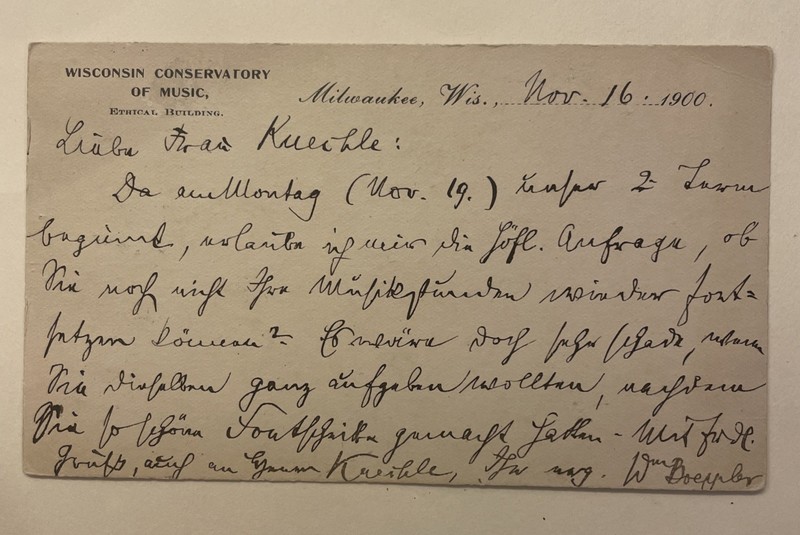 WISCONSIN CONSERVATORY
OF MUSIC,
ETHICAL BUILDING.
Milwaukee, Wis., Nov. 16. 1900.
Liebe Frau Kuechle:
Da am Montag (Nov. 19.) unser 2 Term
beginnt, erlaube ich mir die höfl. Anfrage, ob
Sie noch nicht Ihre Musikstunden wieder fort=
setzen können? Es wäre doch sehr schade, wenn
Sie dieselben ganz aufgeben wollten, nachdem
Sie so schöne Fortschritte gemacht hatten - Mit frdl.
Gruß, auch an Herrn Kuechle, Ihr erg. Wm Boeppler